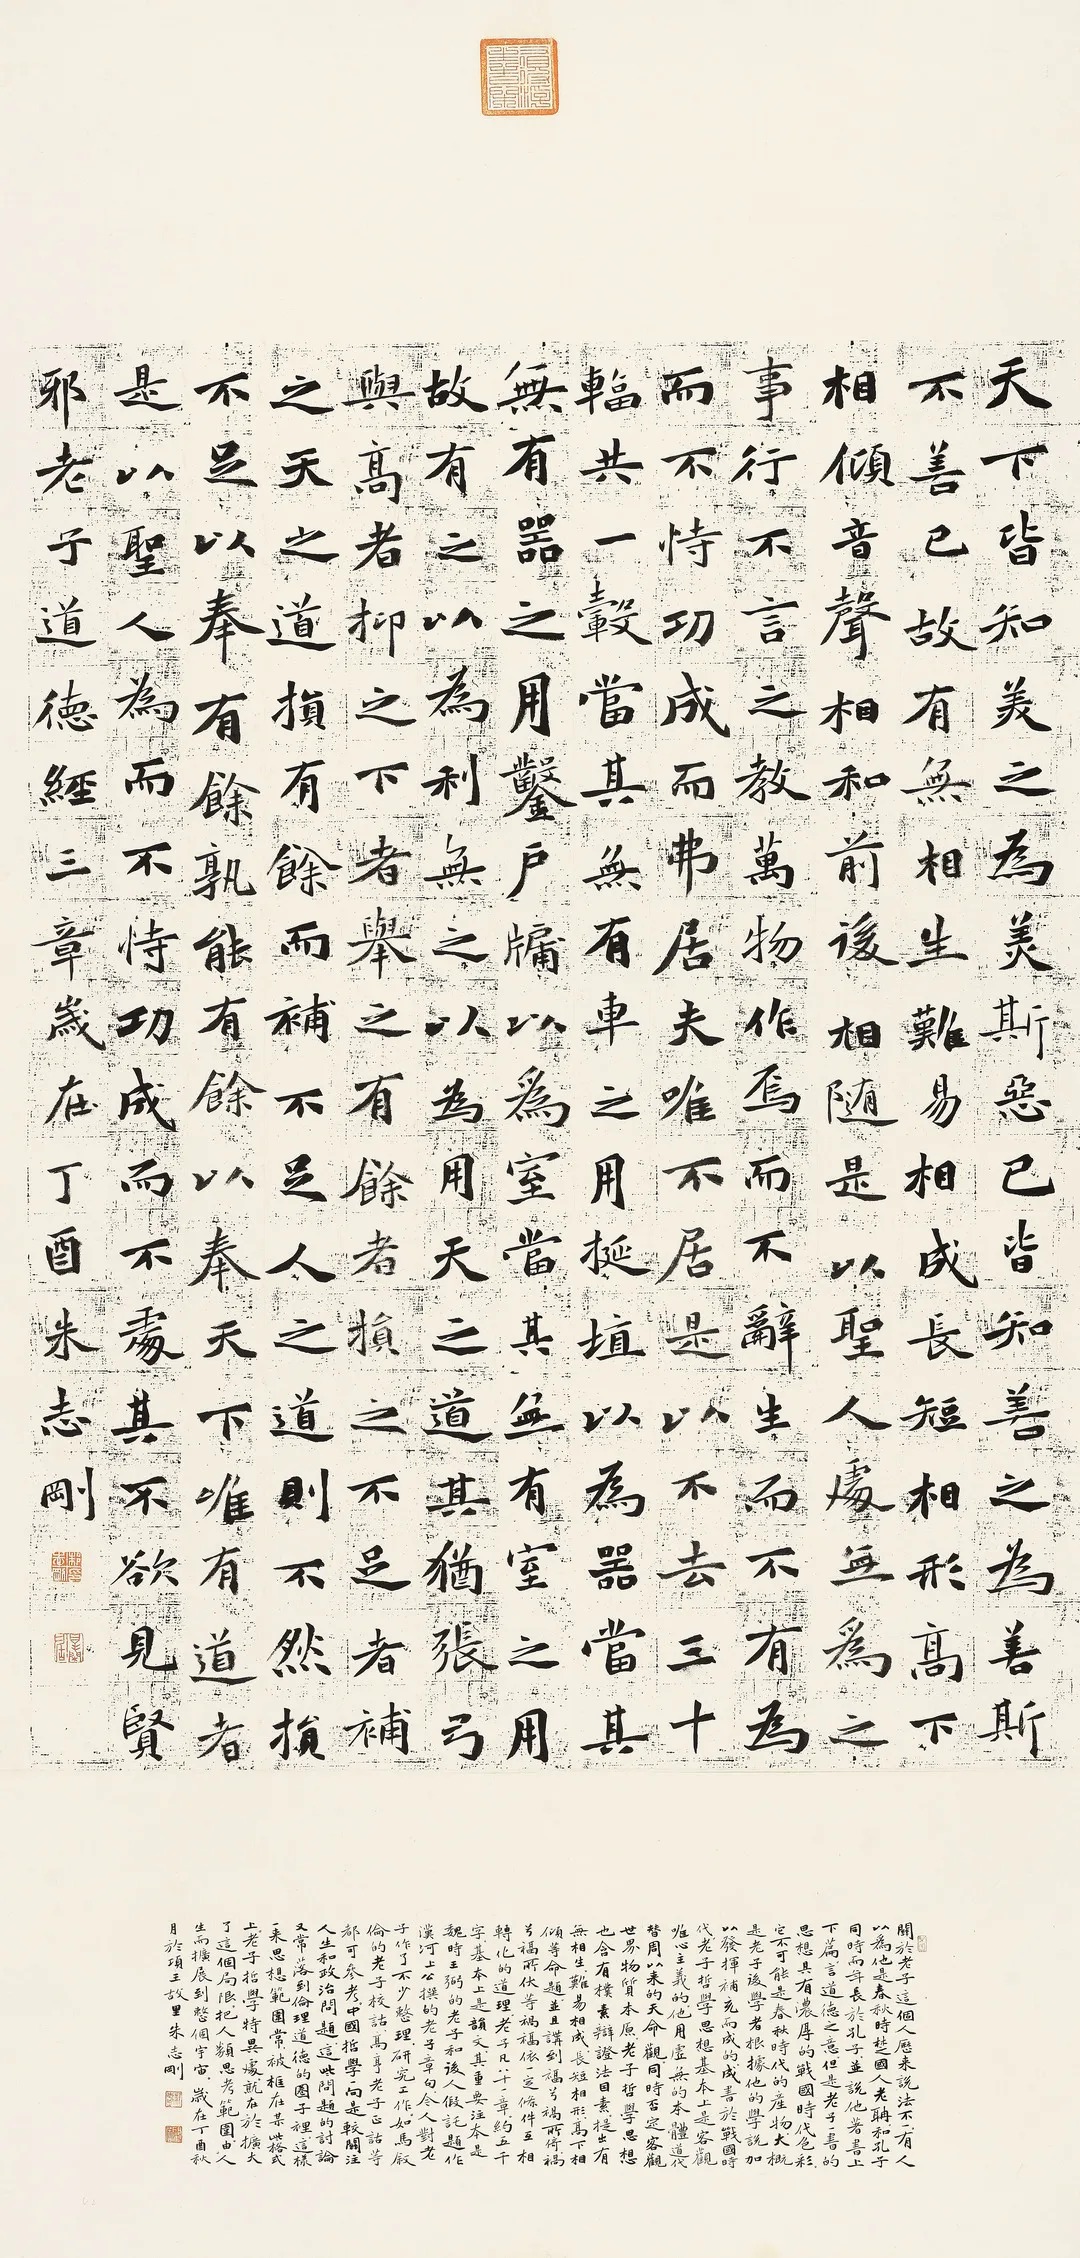 天下皆知美之為美斯惡已皆知善之為善斯
不善已故有無相生難易相成長短相形高下
相傾音聲相和前後相随是以聖人處無為之
事行不言之教萬物作焉而不辭生而不有為
而不恃功成而弗居夫唯不居是以不去三十
輻共一轂當其無有車之用挻埴以為器當其
無有器之用鑿戶牖以為室當其無有室之用
故有之以為利無之以為用天之道其猶張弓
與高者抑之下者舉之有餘者損之不足者補
之天之道損有餘而補不足人之道則不然損
不足以奉有餘孰能有餘以奉天下唯有道者
是以聖人為而不恃功成而不處其不欲見賢
邪老子道德經三章歲在丁酉朱志剛
關於老子這個人歷来說法不一有人
以為他是春秋時楚國人老聃和孔子
同時而年長於孔子並說他著書上
下篇言道德之意但是老子一書的
思想具有濃厚的戰國時代色彩
它不可能是春秋時代的產物大概
是老子後學者根據他的學說加
以發揮補充而成的成書於戰國時
代老子哲學思想基本上是客觀
唯心主義的他用虛無的本體道代
替周以来的天命觀同時否定客觀
世界物質本原老子哲學思想
也含有樸素辯證法因素提出有
無相生難易相成長短相形高下相
傾等命題並且講到福兮禍所倚禍
兮福所伏等禍福依一定條件互相
轉化的道理老子凡八十一章約五千
字基本上是韻文其重要注本是
魏時王弼的老子和後人假託題作
漢河上公撰的老子章句今人對老
子作了不少整理研究工作如馬叙
倫的老子校詁高亨老子正詁等
都可參考中國哲學一向是較關注
人生和政治問題這些問題的討論
又常落到倫理道德的圈子裡這樣
一来思想範圍常被框在某些格式
上老子哲學特異處就在於擴大
了這個局限把人類思考範圍由人
生而擴展到整個宇宙歲在丁酉秋
月於項王故里朱志剛